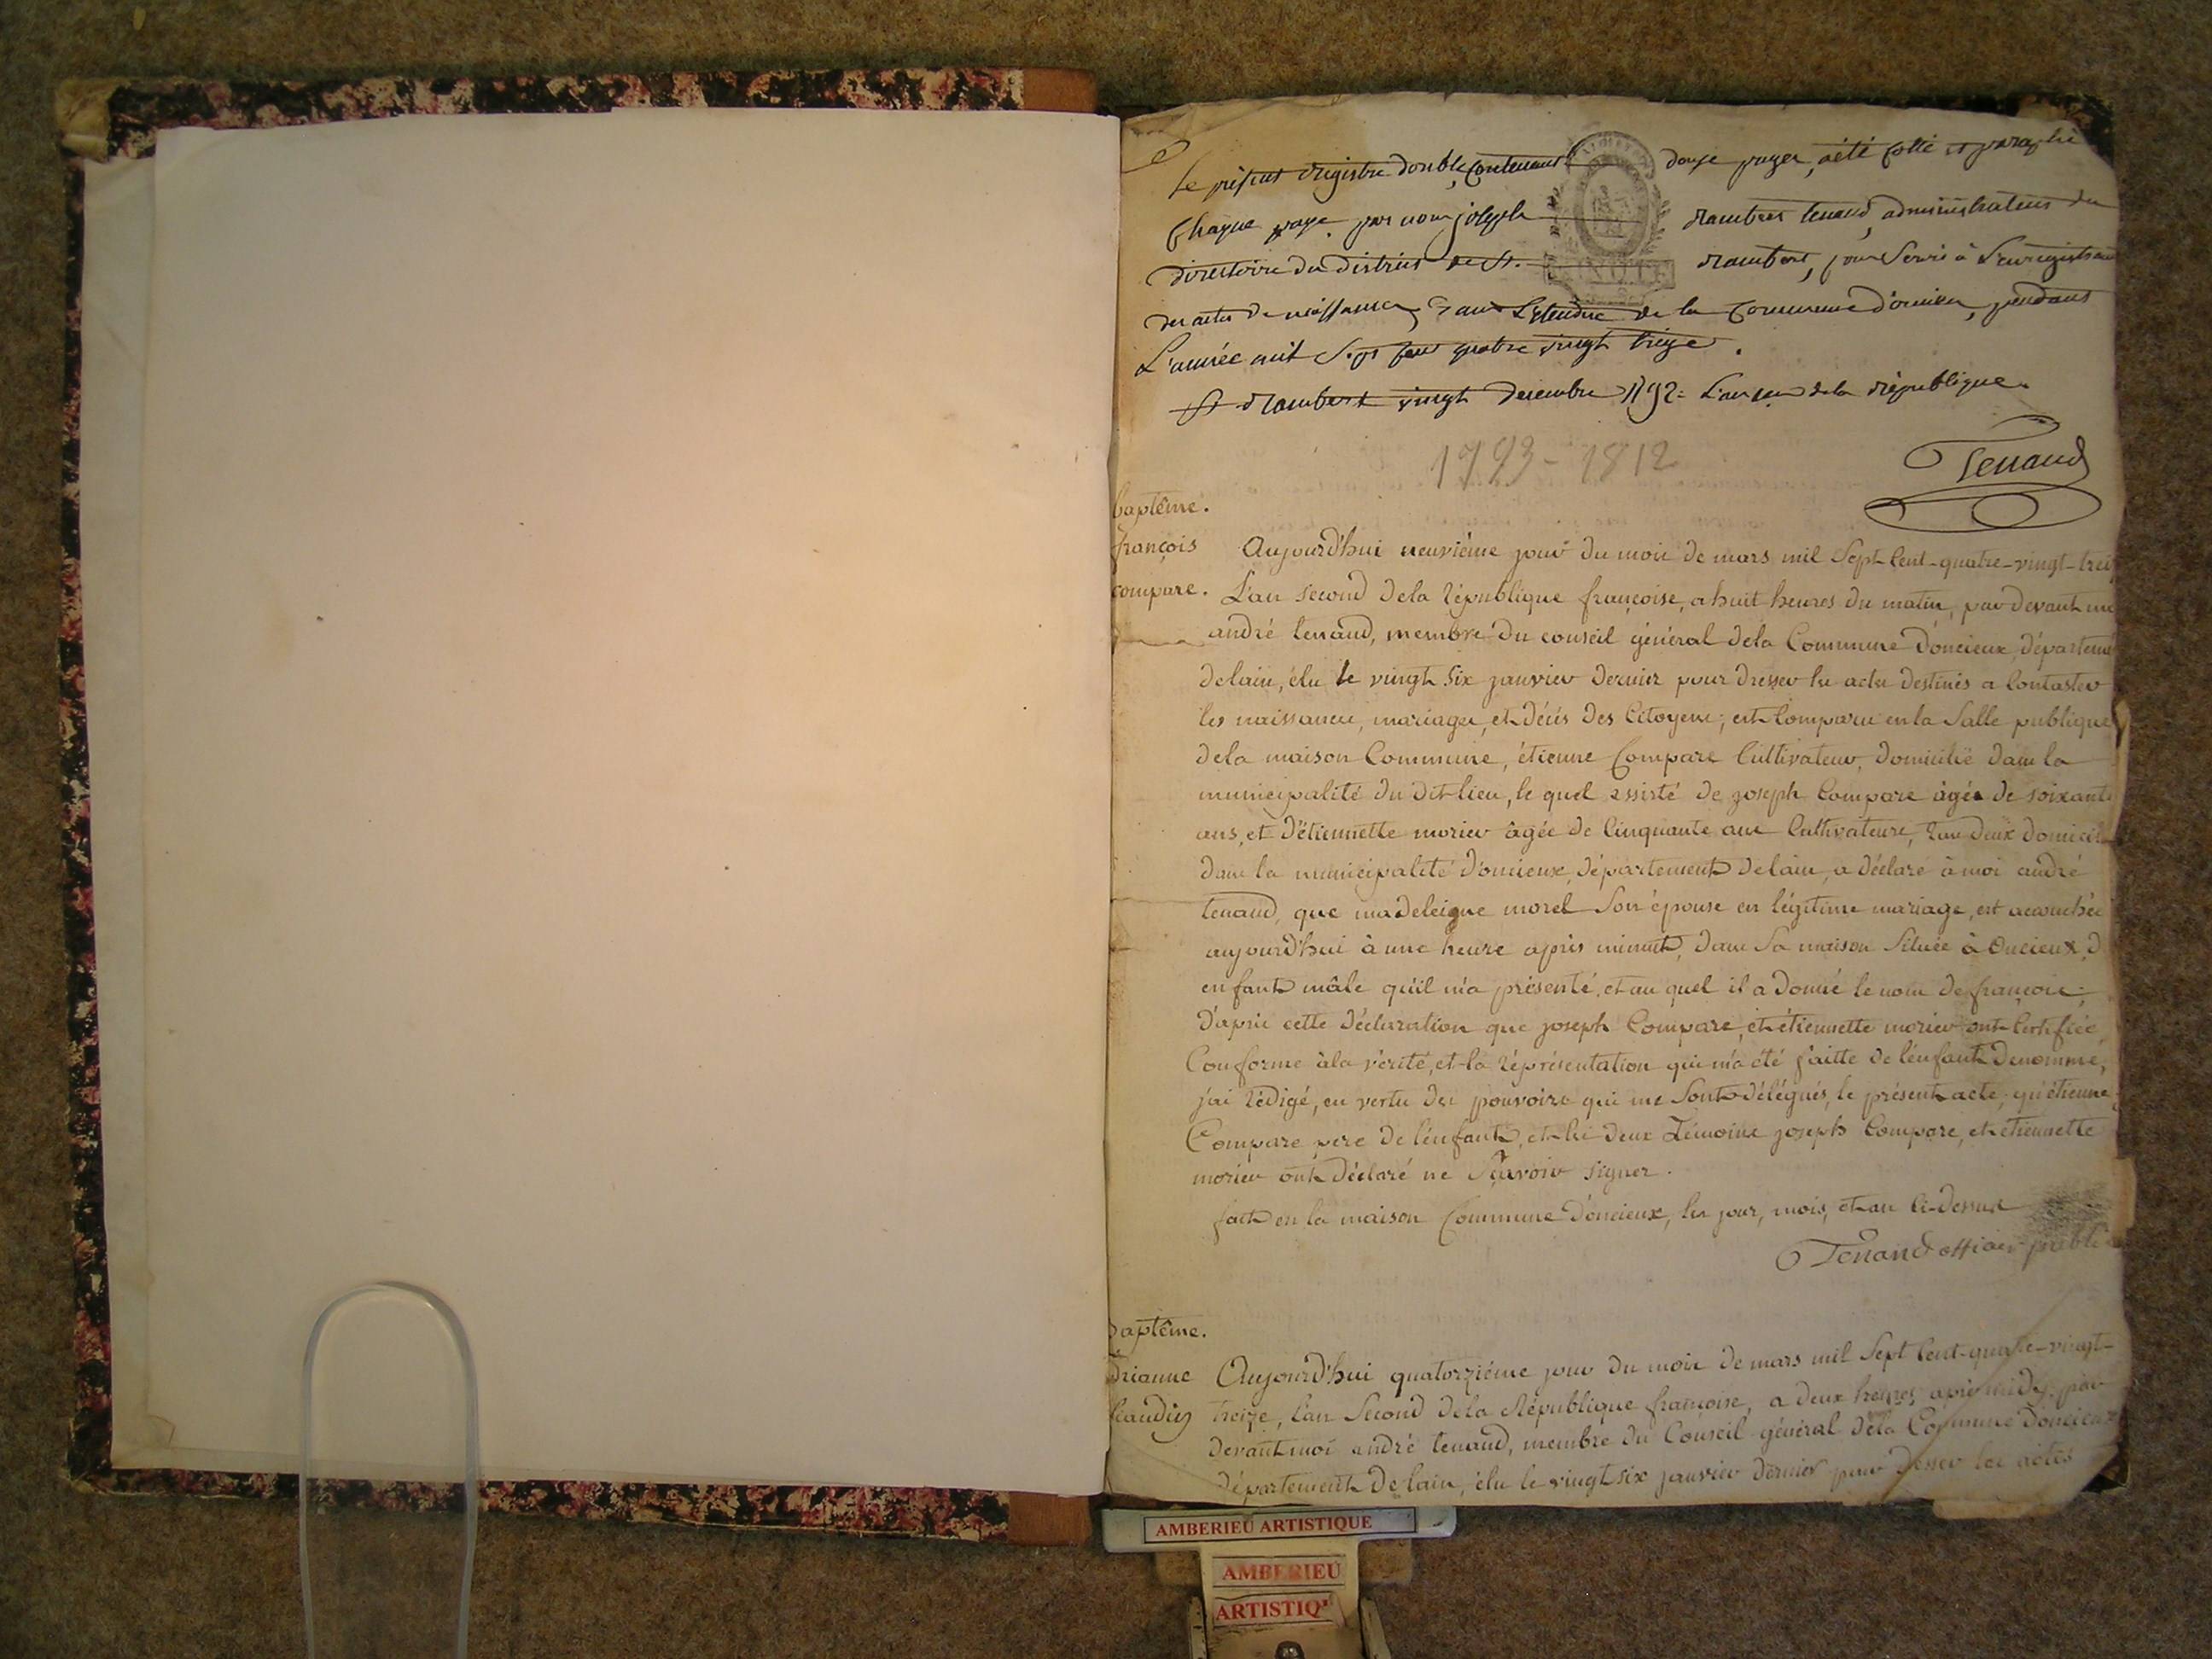 Le présent régistre double, contenant douze pages, a été cotté et paraphé
chaque page par nous joseph rambert tenand, administrateur du
directoire du district de St. rambert, pour servir à l'enregistrem
des actes de naissances dans L'étendue de la commune d'oncieu, pendant
L'année mil sept cent quatre vingt treize.
St rambert vingt decembre 1792. L'an 1er de la république.
Tenand
1793-1812
baptême.
françois
compare.
Aujourd'hui neuvième jour du mois de mars mil sept cent-quatre-vingt-treiz
L'an second de la république françoise, a huit heures du matin, par devant moi
andré tenand, membre du conseil général de la Commune d'oncieux, départeme
de lain, élu le vingt six janvier dernier pour dresser les actes destinés a constater
les naissances, mariages, et décés des Citoyens; est comparu en la salle publique
de la maison Commune, étienne Compare Cultivateur, domicilié dans la
municipalité du dit lieu, le quel assisté de joseph Compare âgé de soixante
ans, et d'étiennette morier âgée de cinquante ans Cultivateurs, tous deux domicil
dans la municipalité d'oncieux, département de lain, a déclaré à moi andré
tenand, que madeleigne morel son épouse en légitime mariage, est acouchée
aujourd'hui à une heure après minuit, dans sa maison située à Oncieux, d
enfant mâle qu'il m'a présenté, et au quel il a donné le nom de françois;
d'après cette déclaration que joseph Compare, et étiennette morier ont certifiée
Conforme à la vérité, et la réprésentation qui m'a été faitte de l'enfant denommé,
j'ai rédigé, en vertu des pouvoirs qui me sont délégués, le présent acte, qu'étienne
Compare pere de l'enfant, et les deux Témoins joseph Compare, et étiennette
morier ont déclaré ne sçavoir signer.
fait en la maison Commune d'oncieux, les jour, mois, et an ci-dessus
Tenand officier public
baptême.
drianne
claudin
Aujourd'hui quatorziéme jour du mois de mars mil sept cent-quatre-vingt-
treize, l'an second de la République françoise, a deux heures après midy, par
devant moi andré tenand, membre du Conseil général de la Commune d'oncieux
département de lain, élu le vingt six janvier dernier pour dresser les actes
AMBERIEU ARTISTIQUE
AMBERIEU
ARTISTIQ